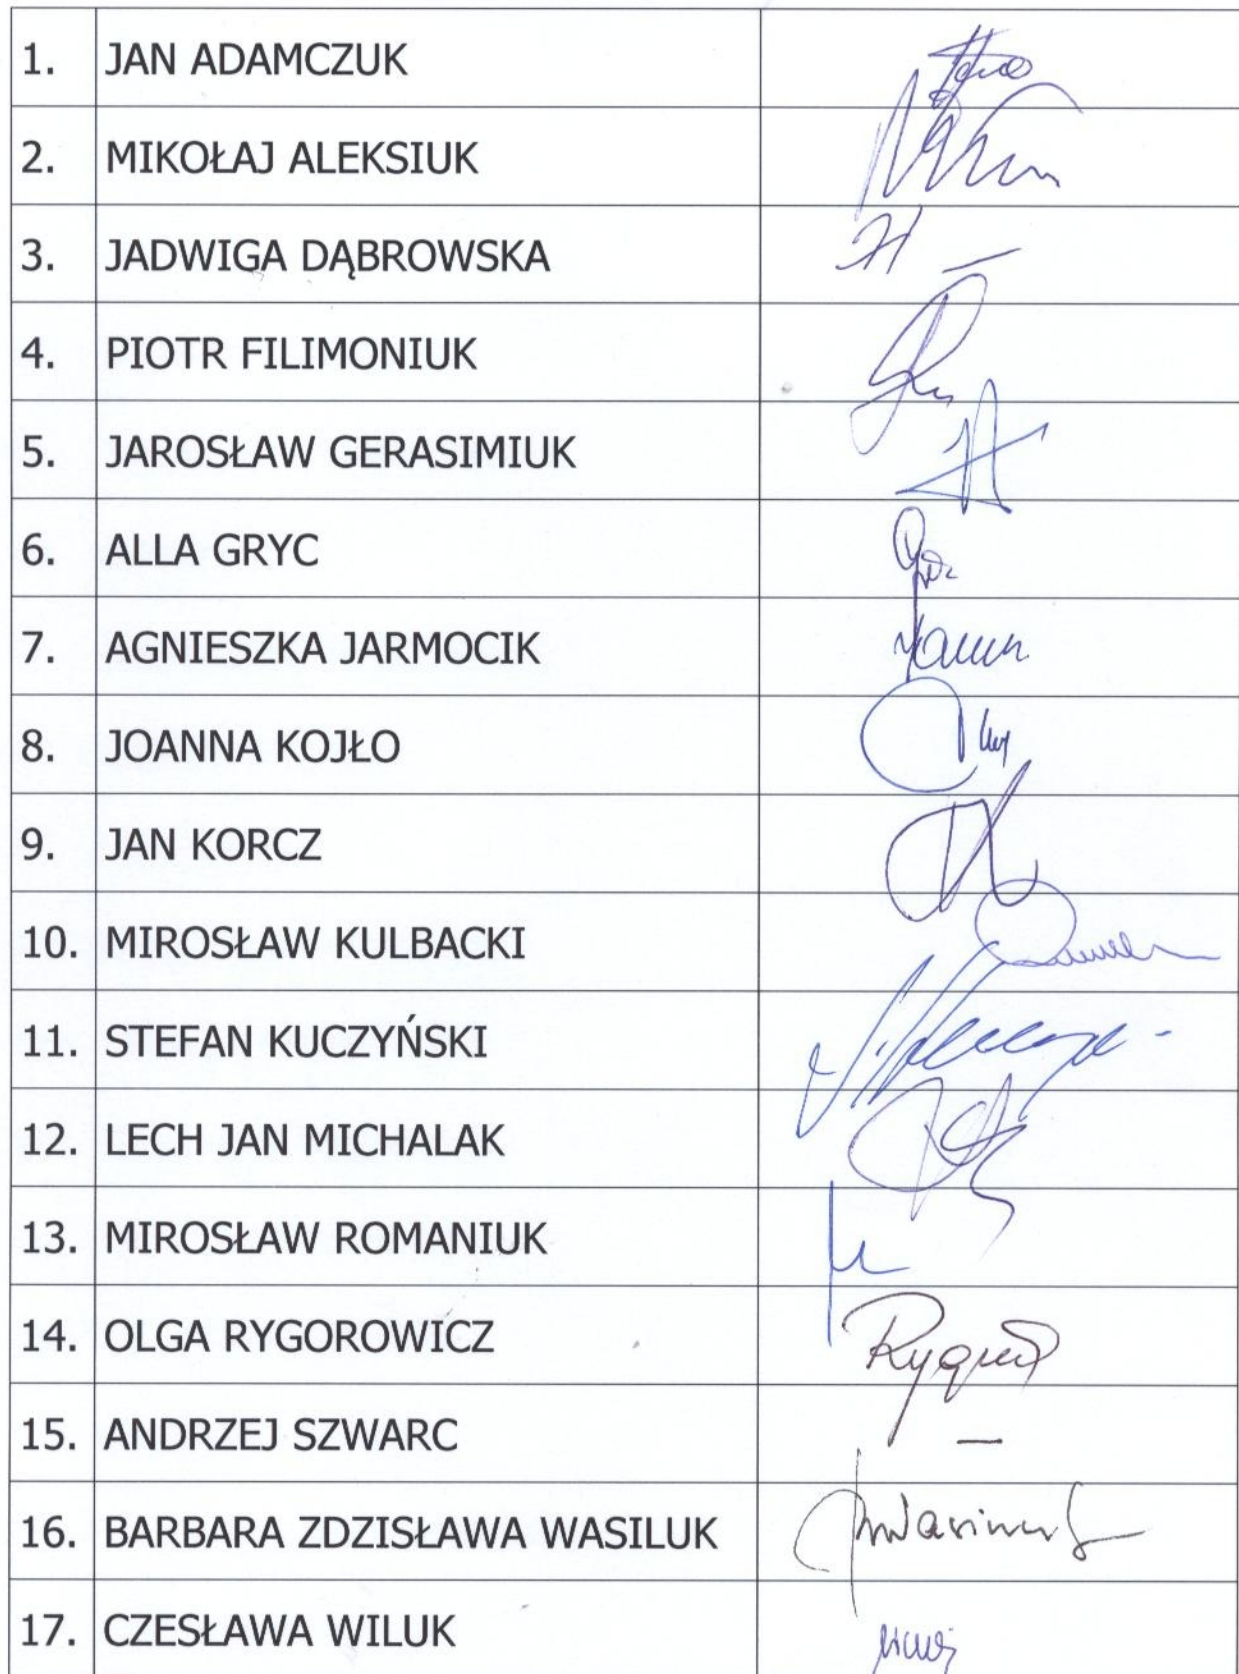 1. JAN ADAMCZUK
2. MIKOŁAJ ALEKSIUK
3. JADWIGA DĄBROWSKA
4. PIOTR FILIMONIUK
5. JAROSŁAW GERASIMIUK
6. ALLA GRYC
7. AGNIESZKA JARMOCIK
8. JOANNA KOJŁO
9. JAN KORCZ
10. MIROSŁAW KULBACKI
11. STEFAN KUCZYŃSKI
12. LECH JAN MICHALAK
13. MIROSŁAW ROMANIUK
14. OLGA RYGOROWICZ
15. ANDRZEJ SZWARC
16. BARBARA ZDZISŁAWA WASILUK
17. CZESŁAWA WILUK